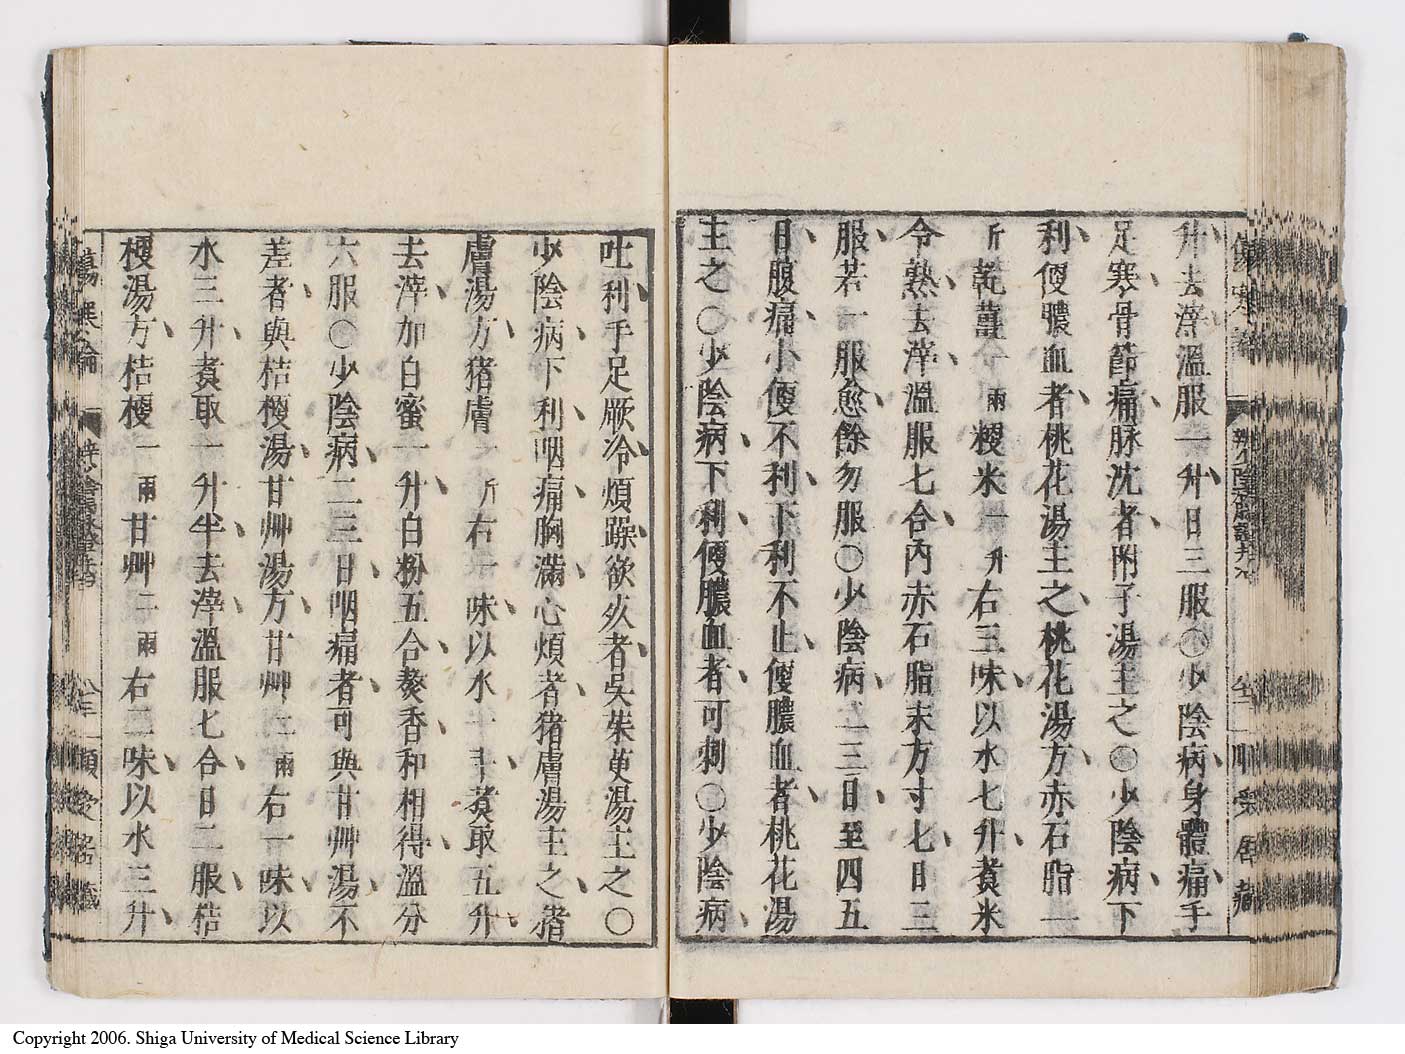 升去滓溫服一升日三服〇少陰病身體痛手
足寒骨節痛脉沈者附子湯主之〇少陰病下
利便膿血者桃花湯主之桃花湯方赤石脂一
斤乾薑一兩粳米一升右三味以水七升煑米
令熟去滓溫服七合內赤石脂末方寸匕日三
服若一服愈餘勿服〇少陰病二三日至四五
日腹痛小便不利下利不止便膿血者桃花湯
主之〇少陰病下利便膿血者可刺〇少陰病
吐利手足厥冷煩躁欲死者吳茱萸湯主之〇
少陰病下利咽痛胸滿心煩者猪膚湯主之猪
膚湯方猪膚一斤右一味以水一斗煑取五升
去滓加白蜜一升白粉五合熬香和相得溫分
六服〇少陰病二三日咽痛者可與甘艸湯不
差者與桔梗湯甘艸湯方甘艸二兩右一味以
水三升煑取一升半去滓溫服七合日二服桔
梗湯方桔梗一兩甘艸二兩右二味以水三升
傷寒論
Copyright 2006. Shiga University of Medical Science Library